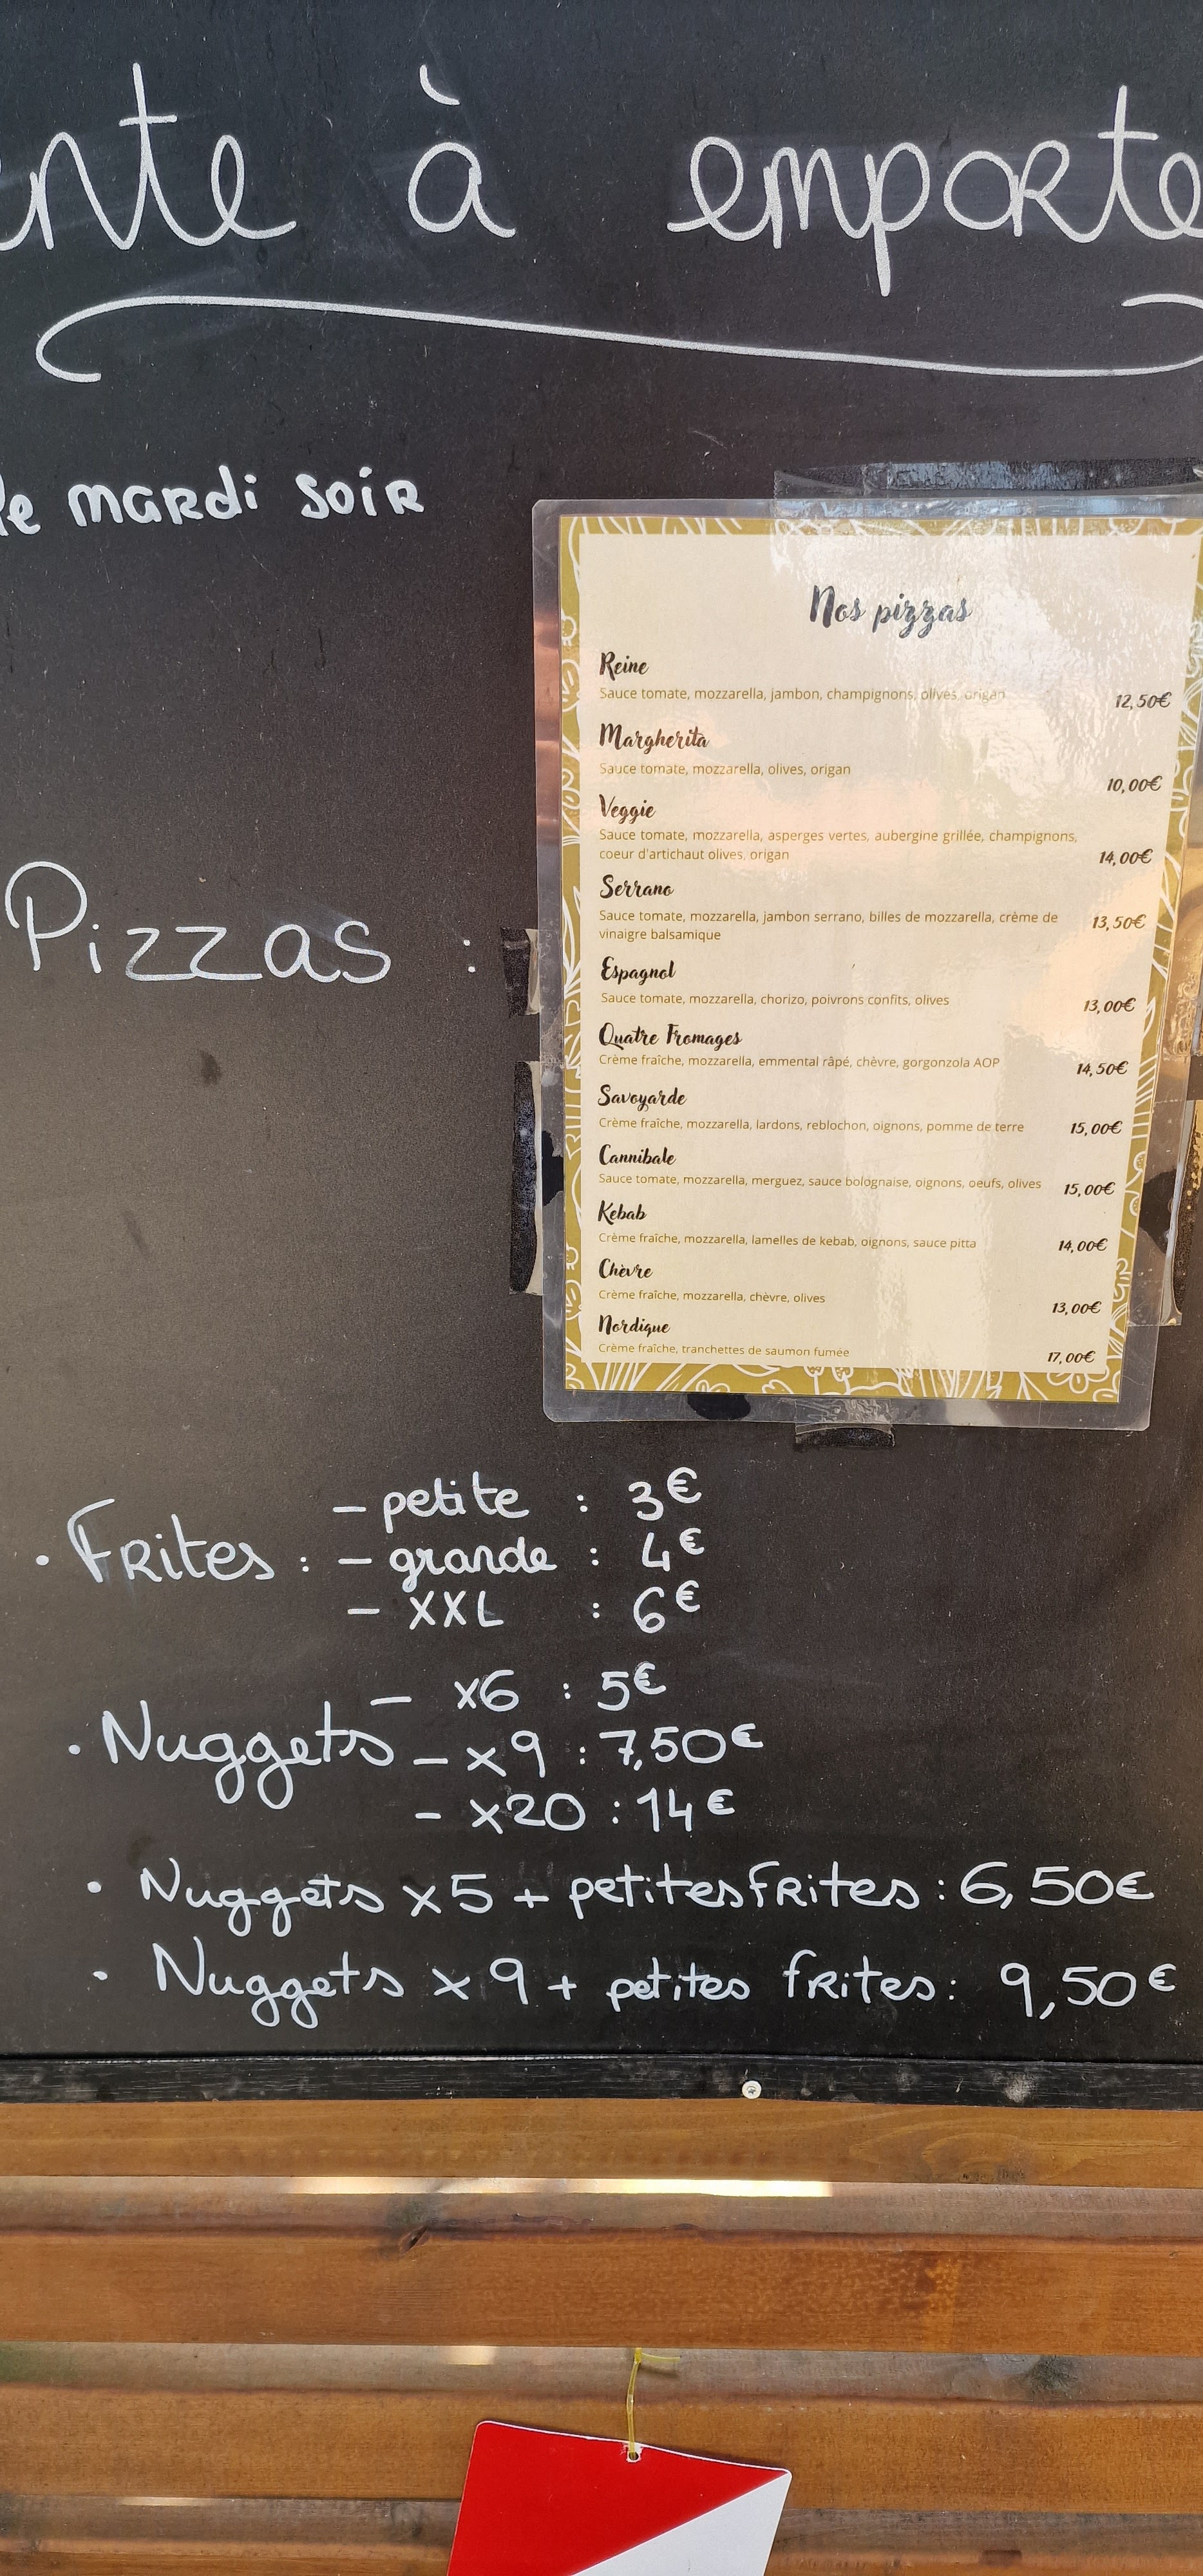 nte à emporte
le mardi soir
Nos pizzas
Reine
Sauce tomate, mozzarella, jambon, champignons, olives, origan
12,50€
Margherita
Sauce tomate, mozzarella, olives, origan
10,00€
Veggie
Sauce tomate, mozzarella, asperges vertes, aubergine grillée, champignons,
coeur d'artichaut olives, origan
14,00€
Serrano
Sauce tomate, mozzarella, jambon serrano, billes de mozzarella, crème de
vinaigre balsamique
13,50€
Pizzas :
Espagnol
Sauce tomate, mozzarella, chorizo, poivrons confits, olives
13,00€
Quatre Fromages
Crème fraîche, mozzarella, emmental râpé, chèvre, gorgonzola AOP
14,50€
Savoyarde
Crème fraîche, mozzarella, lardons, reblochon, oignons, pomme de terre
15,00€
Cannibale
Sauce tomate, mozzarella, merguez, sauce bolognaise, oignons, oeufs, olives
15,00€
Kebab
Crème fraîche, mozzarella, lamelles de kebab, oignons, sauce pitta
14,00€
Chèvre
Crème fraîche, mozzarella, chèvre, olives
13,00€
Nordique
Crème fraîche, tranchettes de saumon fumée
17,00€
- petite : 3€
• Frites : - grande : 4€
- XXL : 6€
- x6 : 5€
• Nuggets - x9 : 7,50€
- x20 : 14€
• Nuggets x5 + petites frites : 6,50€
• Nuggets x9 + petites frites : 9,50€